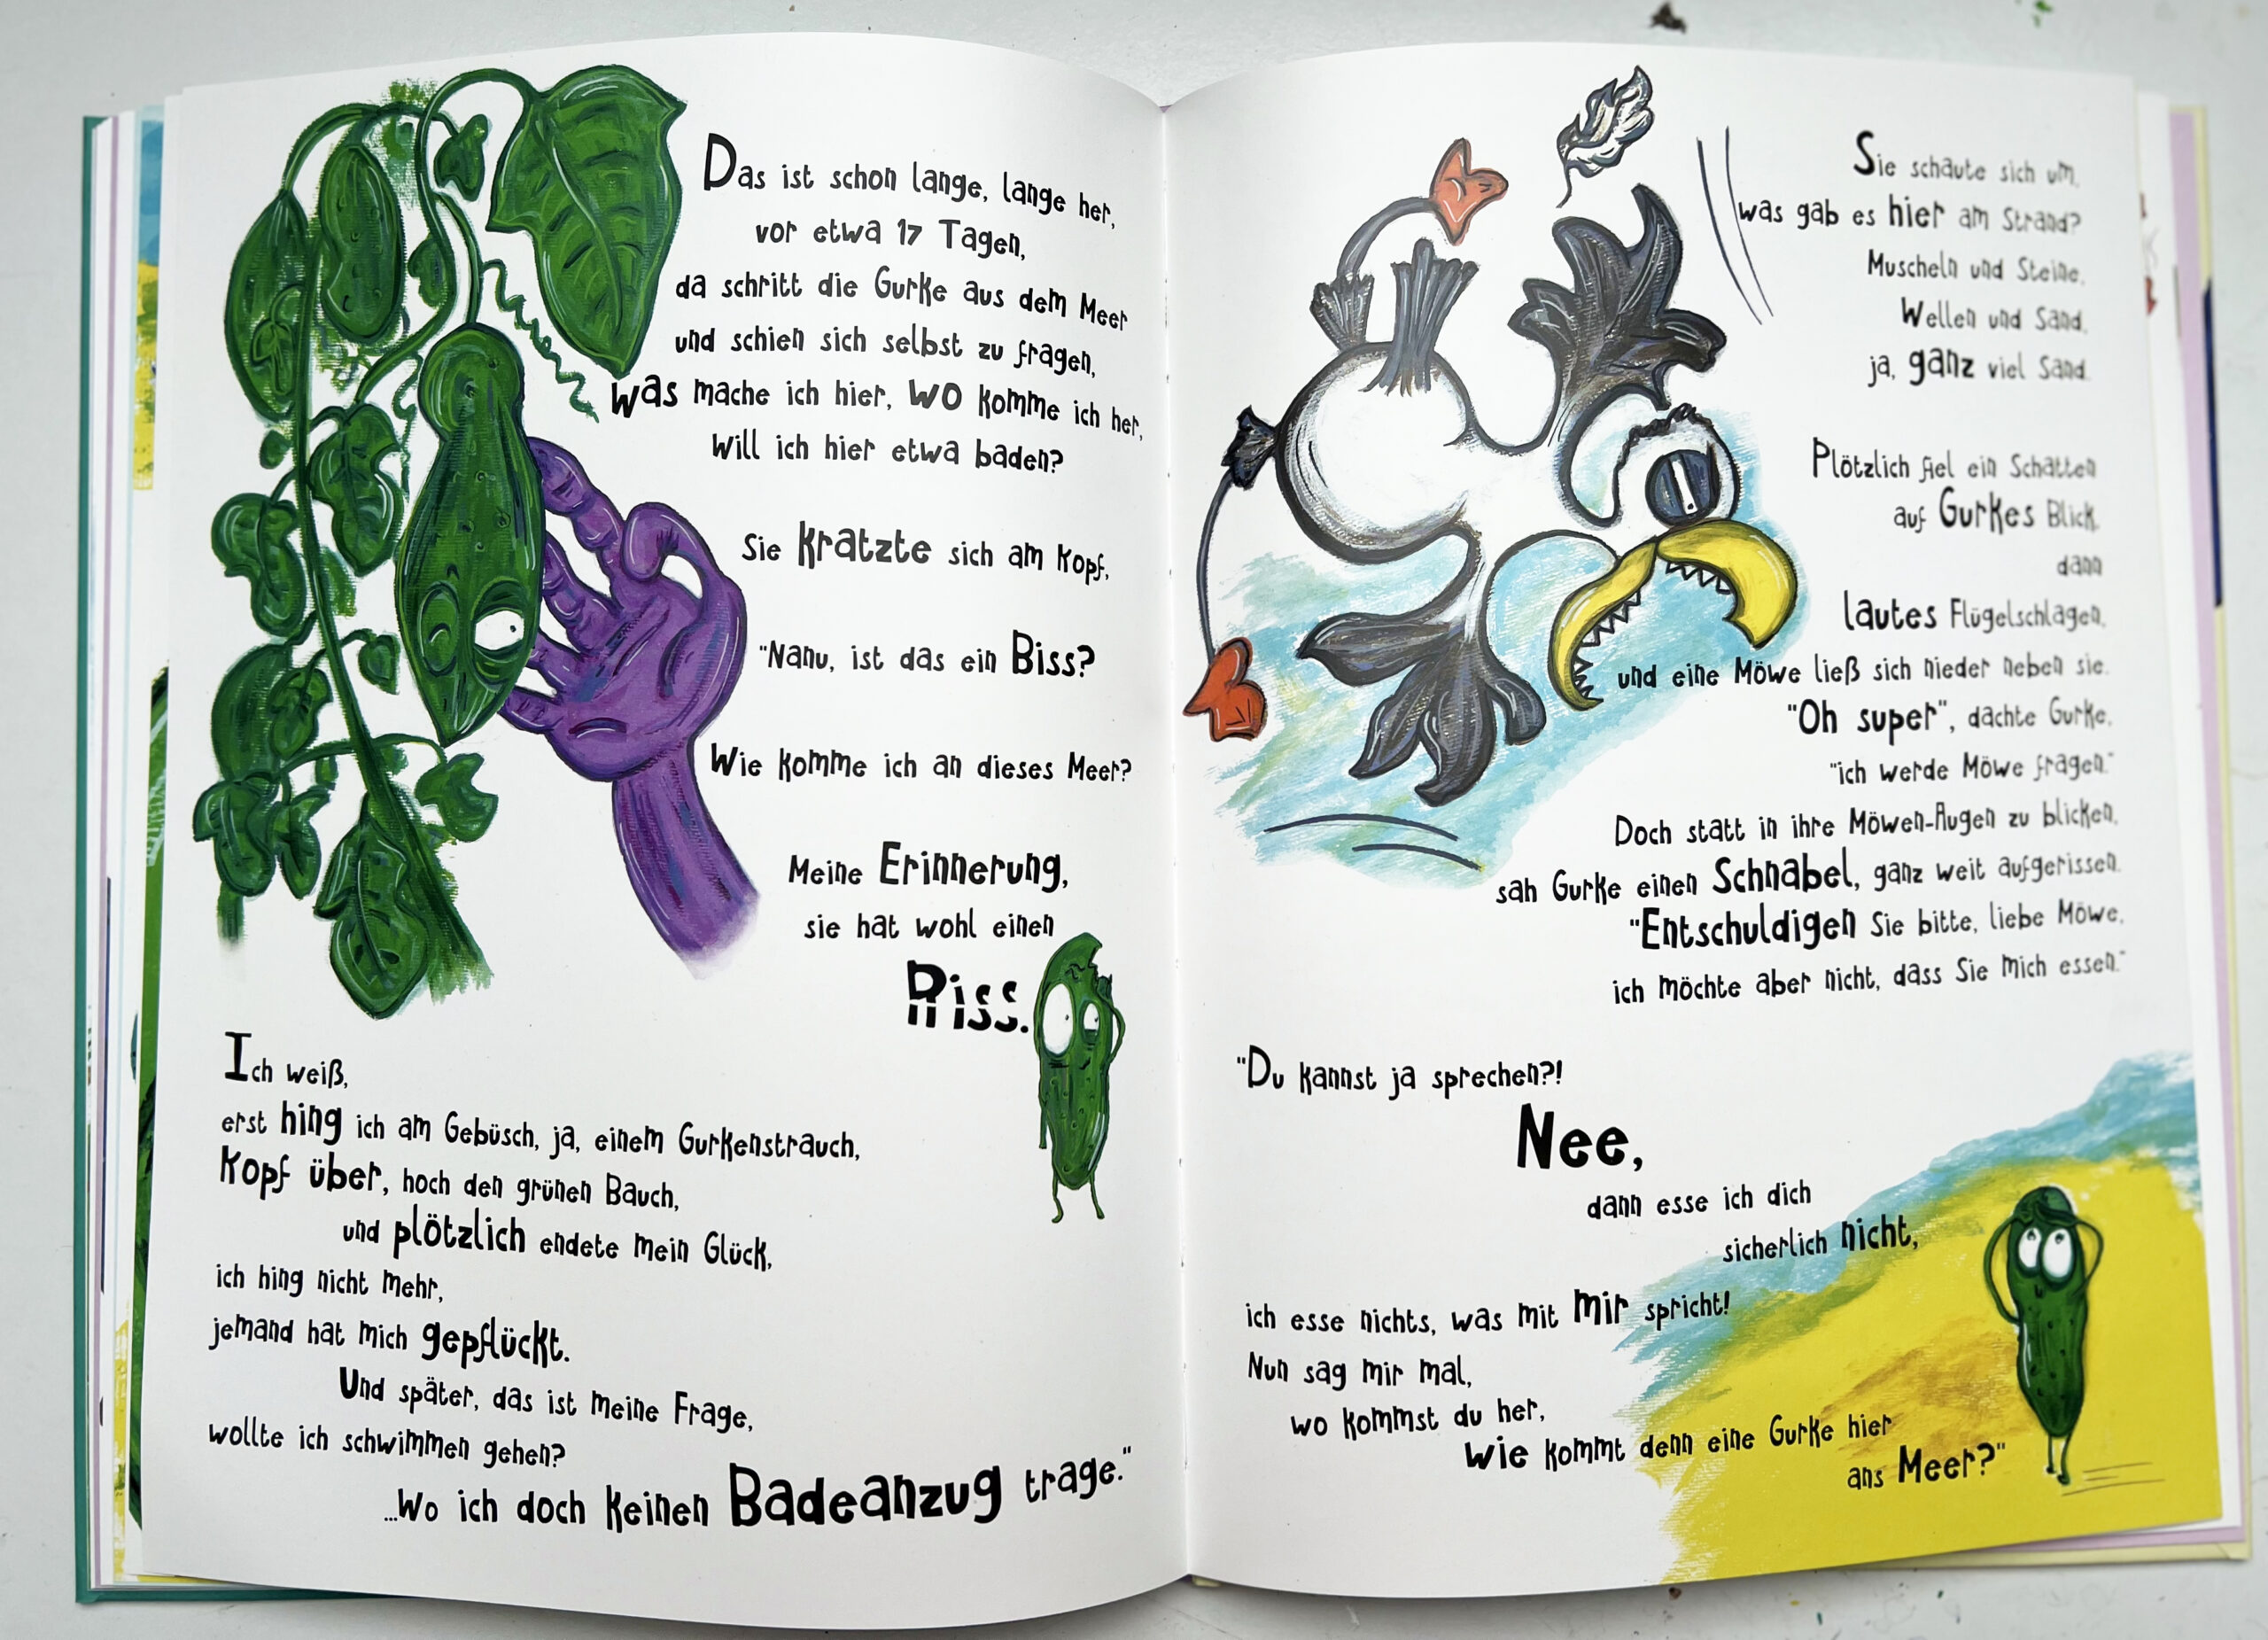 Das ist schon lange, lange her,
vor etwa 17 Tagen,
da schritt die Gurke aus dem Meer
und schien sich selbst zu fragen,
was mache ich hier, wo komme ich her,
will ich hier etwa baden?
Sie kratzte sich am Kopf,
"Nanu, ist das ein Biss?
Wie komme ich an dieses Meer?
Meine Erinnerung,
sie hat wohl einen
Riss.
Ich weiß,
erst hing ich am Gebüsch, ja, einem Gurkenstrauch,
Kopf über, hoch den grünen Bauch,
und plötzlich endete mein Glück,
ich hing nicht mehr,
jemand hat mich gepflückt.
Und später, das ist meine Frage,
wollte ich schwimmen gehen?
...Wo ich doch keinen Badeanzug trage."
Sie schaute sich um,
was gab es hier am Strand?
Muscheln und Steine,
Wellen und Sand,
ja, ganz viel Sand.
Plötzlich fiel ein Schatten
auf Gurkes Blick,
dann
lautes Flügelschlagen,
und eine Möwe ließ sich nieder neben sie.
"Oh super", dachte Gurke,
"ich werde Möwe fragen."
Doch statt in ihre Möwen-Augen zu blicken,
sah Gurke einen Schnabel, ganz weit aufgerissen.
"Entschuldigen Sie bitte, liebe Möwe,
ich möchte aber nicht, dass Sie mich essen."
"Du kannst ja sprechen?!
Nee,
dann esse ich dich
sicherlich nicht,
ich esse nichts, was mit mir spricht!
Nun sag mir mal,
wo kommst du her,
wie kommt denn eine Gurke hier
ans Meer?"